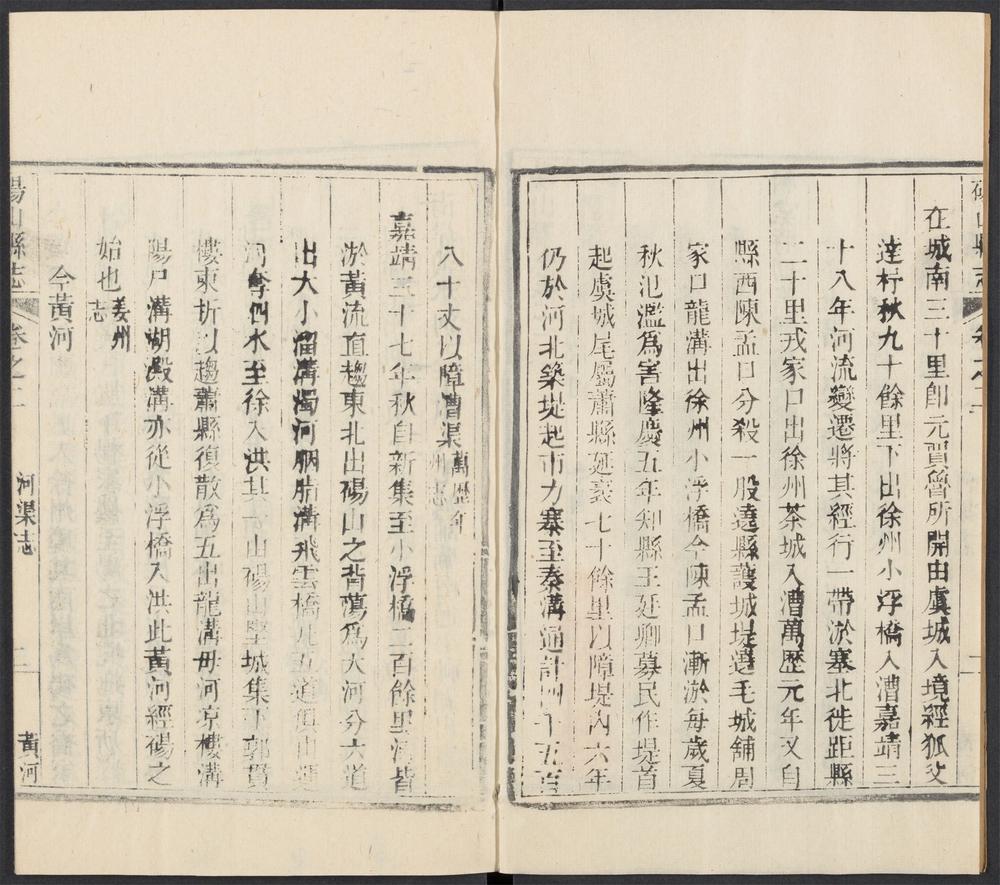 在城南三十里卽元賈魯所開由虞城入境經狐父
達杼秋九十餘里下出徐州小浮橋入漕嘉靖三
十八年河流變遷將其經行一帶淤塞北徙距縣
二十里戎家口出徐州茶城入漕萬歷元年又自
縣西陳孟口分殺一股遶縣護城堤遶毛城舖周
家口龍溝出徐州小浮橋今陳孟口漸淤每歲夏
秋氾濫爲害隆慶五年知縣王廷卿募民作堤首
起虞城尾屬蕭縣延袤七十餘里以障堤內六年
仍於河北築堤起市力寨至秦溝通計四千五百
八十丈以障漕渠萬歷徐
州志
嘉靖三十七年秋自新集至小浮橋二百餘里河皆
淤黃流直趨東北出碭山之背蕩爲大河分六道
出大小溜溝濁河胭脂溝飛雲橋此五道俱由運
河奪泗水至徐入洪其一由碭山堅城集下郭貫
樓東折以趨蕭縣復散爲五出龍溝母河凉樓溝
陽尸溝湖澱溝亦從小浮橋入洪此黃河經碭之
始也姜州
志
今黃河
碭山縣志
卷之二
河渠志
二
黃河